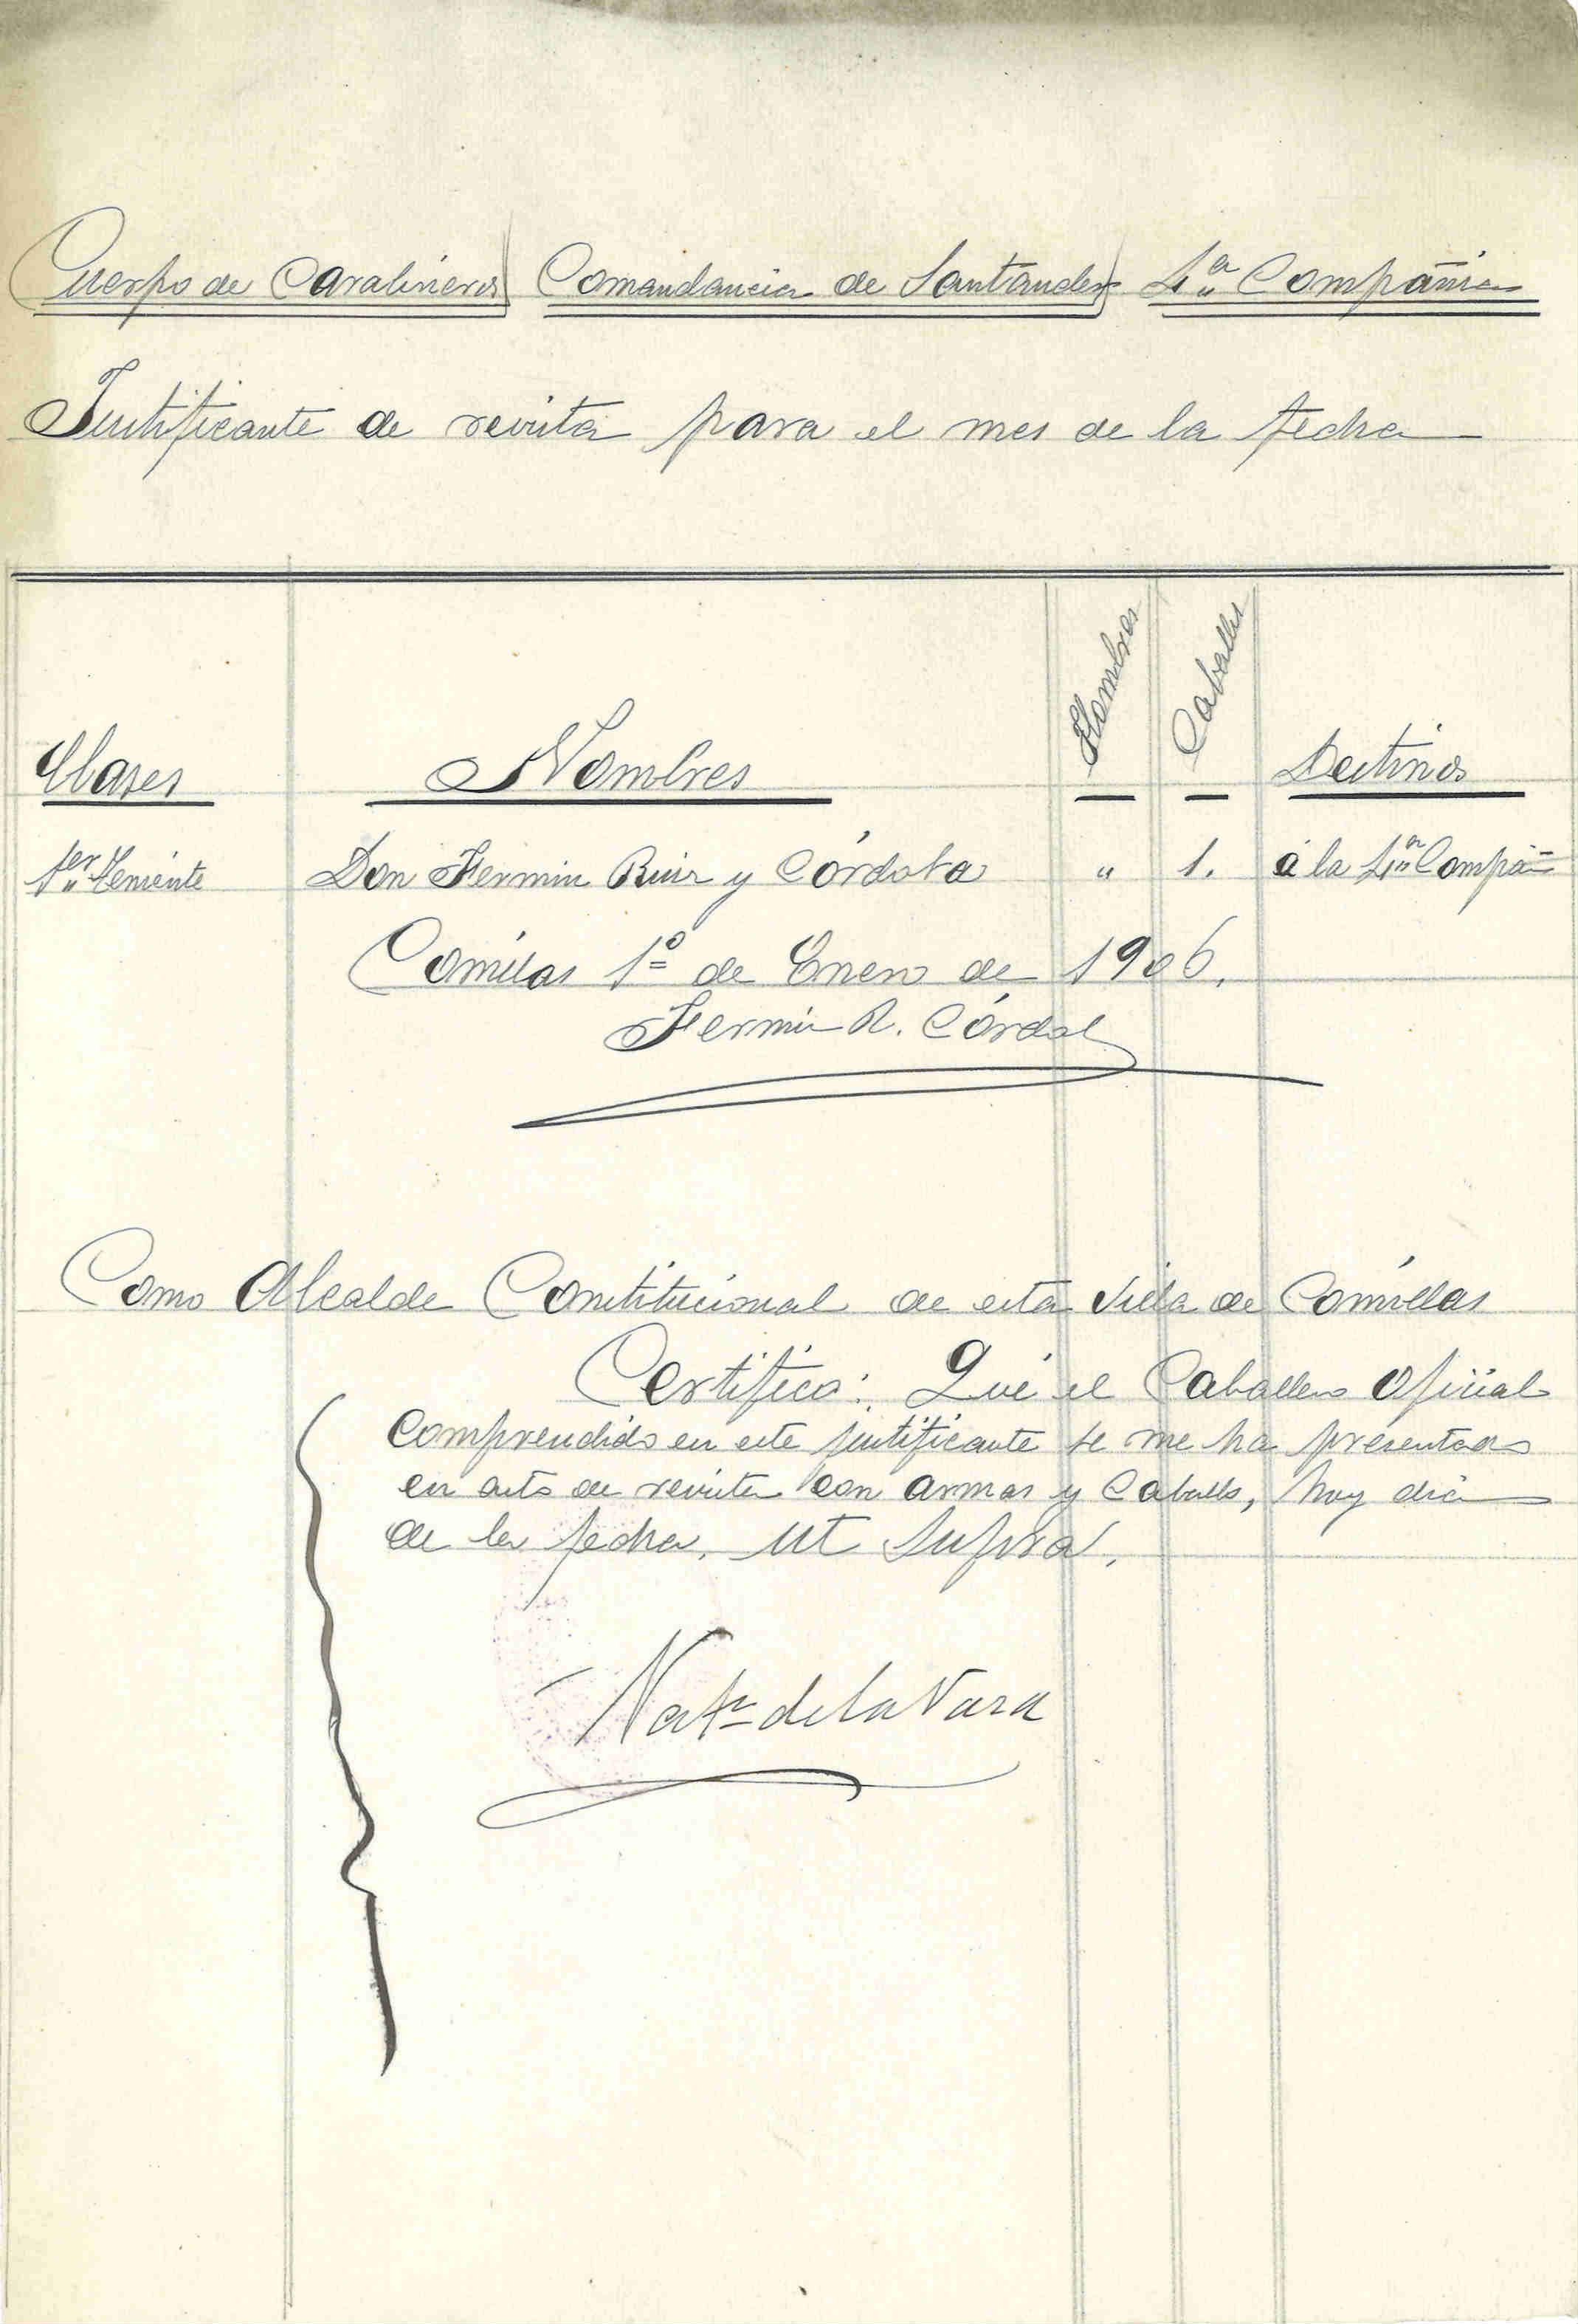 Cuerpo de Carabineros Comandancia de Santander 4ª Compañia
Justificante de revista para el mes de la fecha
Clases Nombres Hombres Caballos Destinos
1er Teniente Don Fermin Ruiz y Córdoba " 1. á la 4ª Compañ
Comillas 1º de Enero de 1906.
Fermin R. Córdob
Como Alcalde Constitucional de esta Villa de Comillas
Certifico: Que el Caballero Oficial
comprendido en este justificante se me ha presentado
en acto de revista con armas y caballo, hoy dia
de la fecha. Ut Supra.
de la Vara